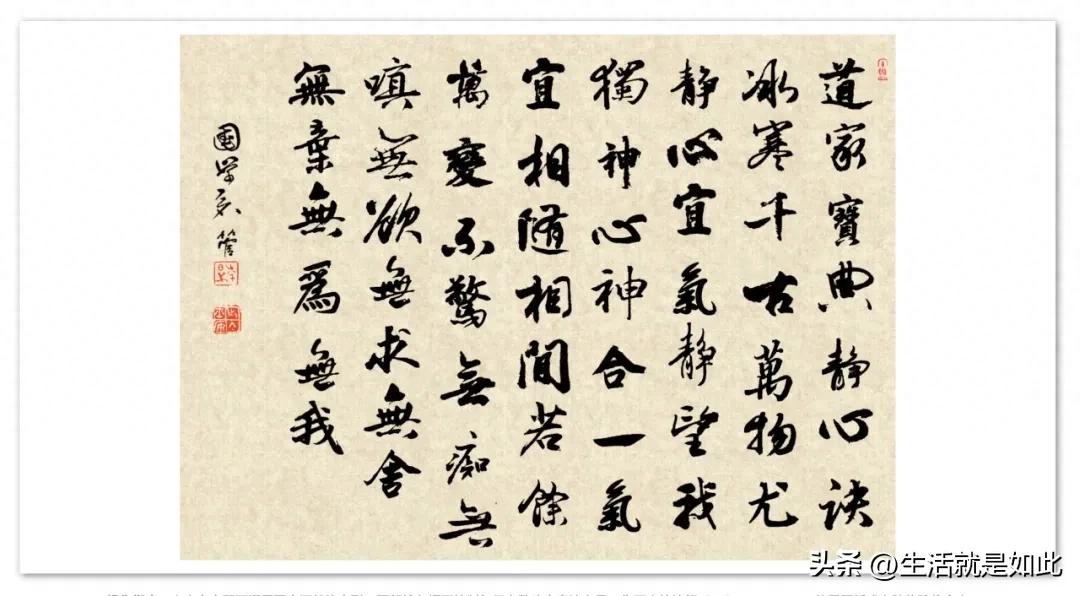 道家寶典静心诀
冰寒千古萬物尤
静心宜氣静望我
獨神心神合一氣
宜相随相間若餘
萬變不驚無痴無
嗔無欲無求無舍
無棄無爲無我
國学
头条 @生活就是如此